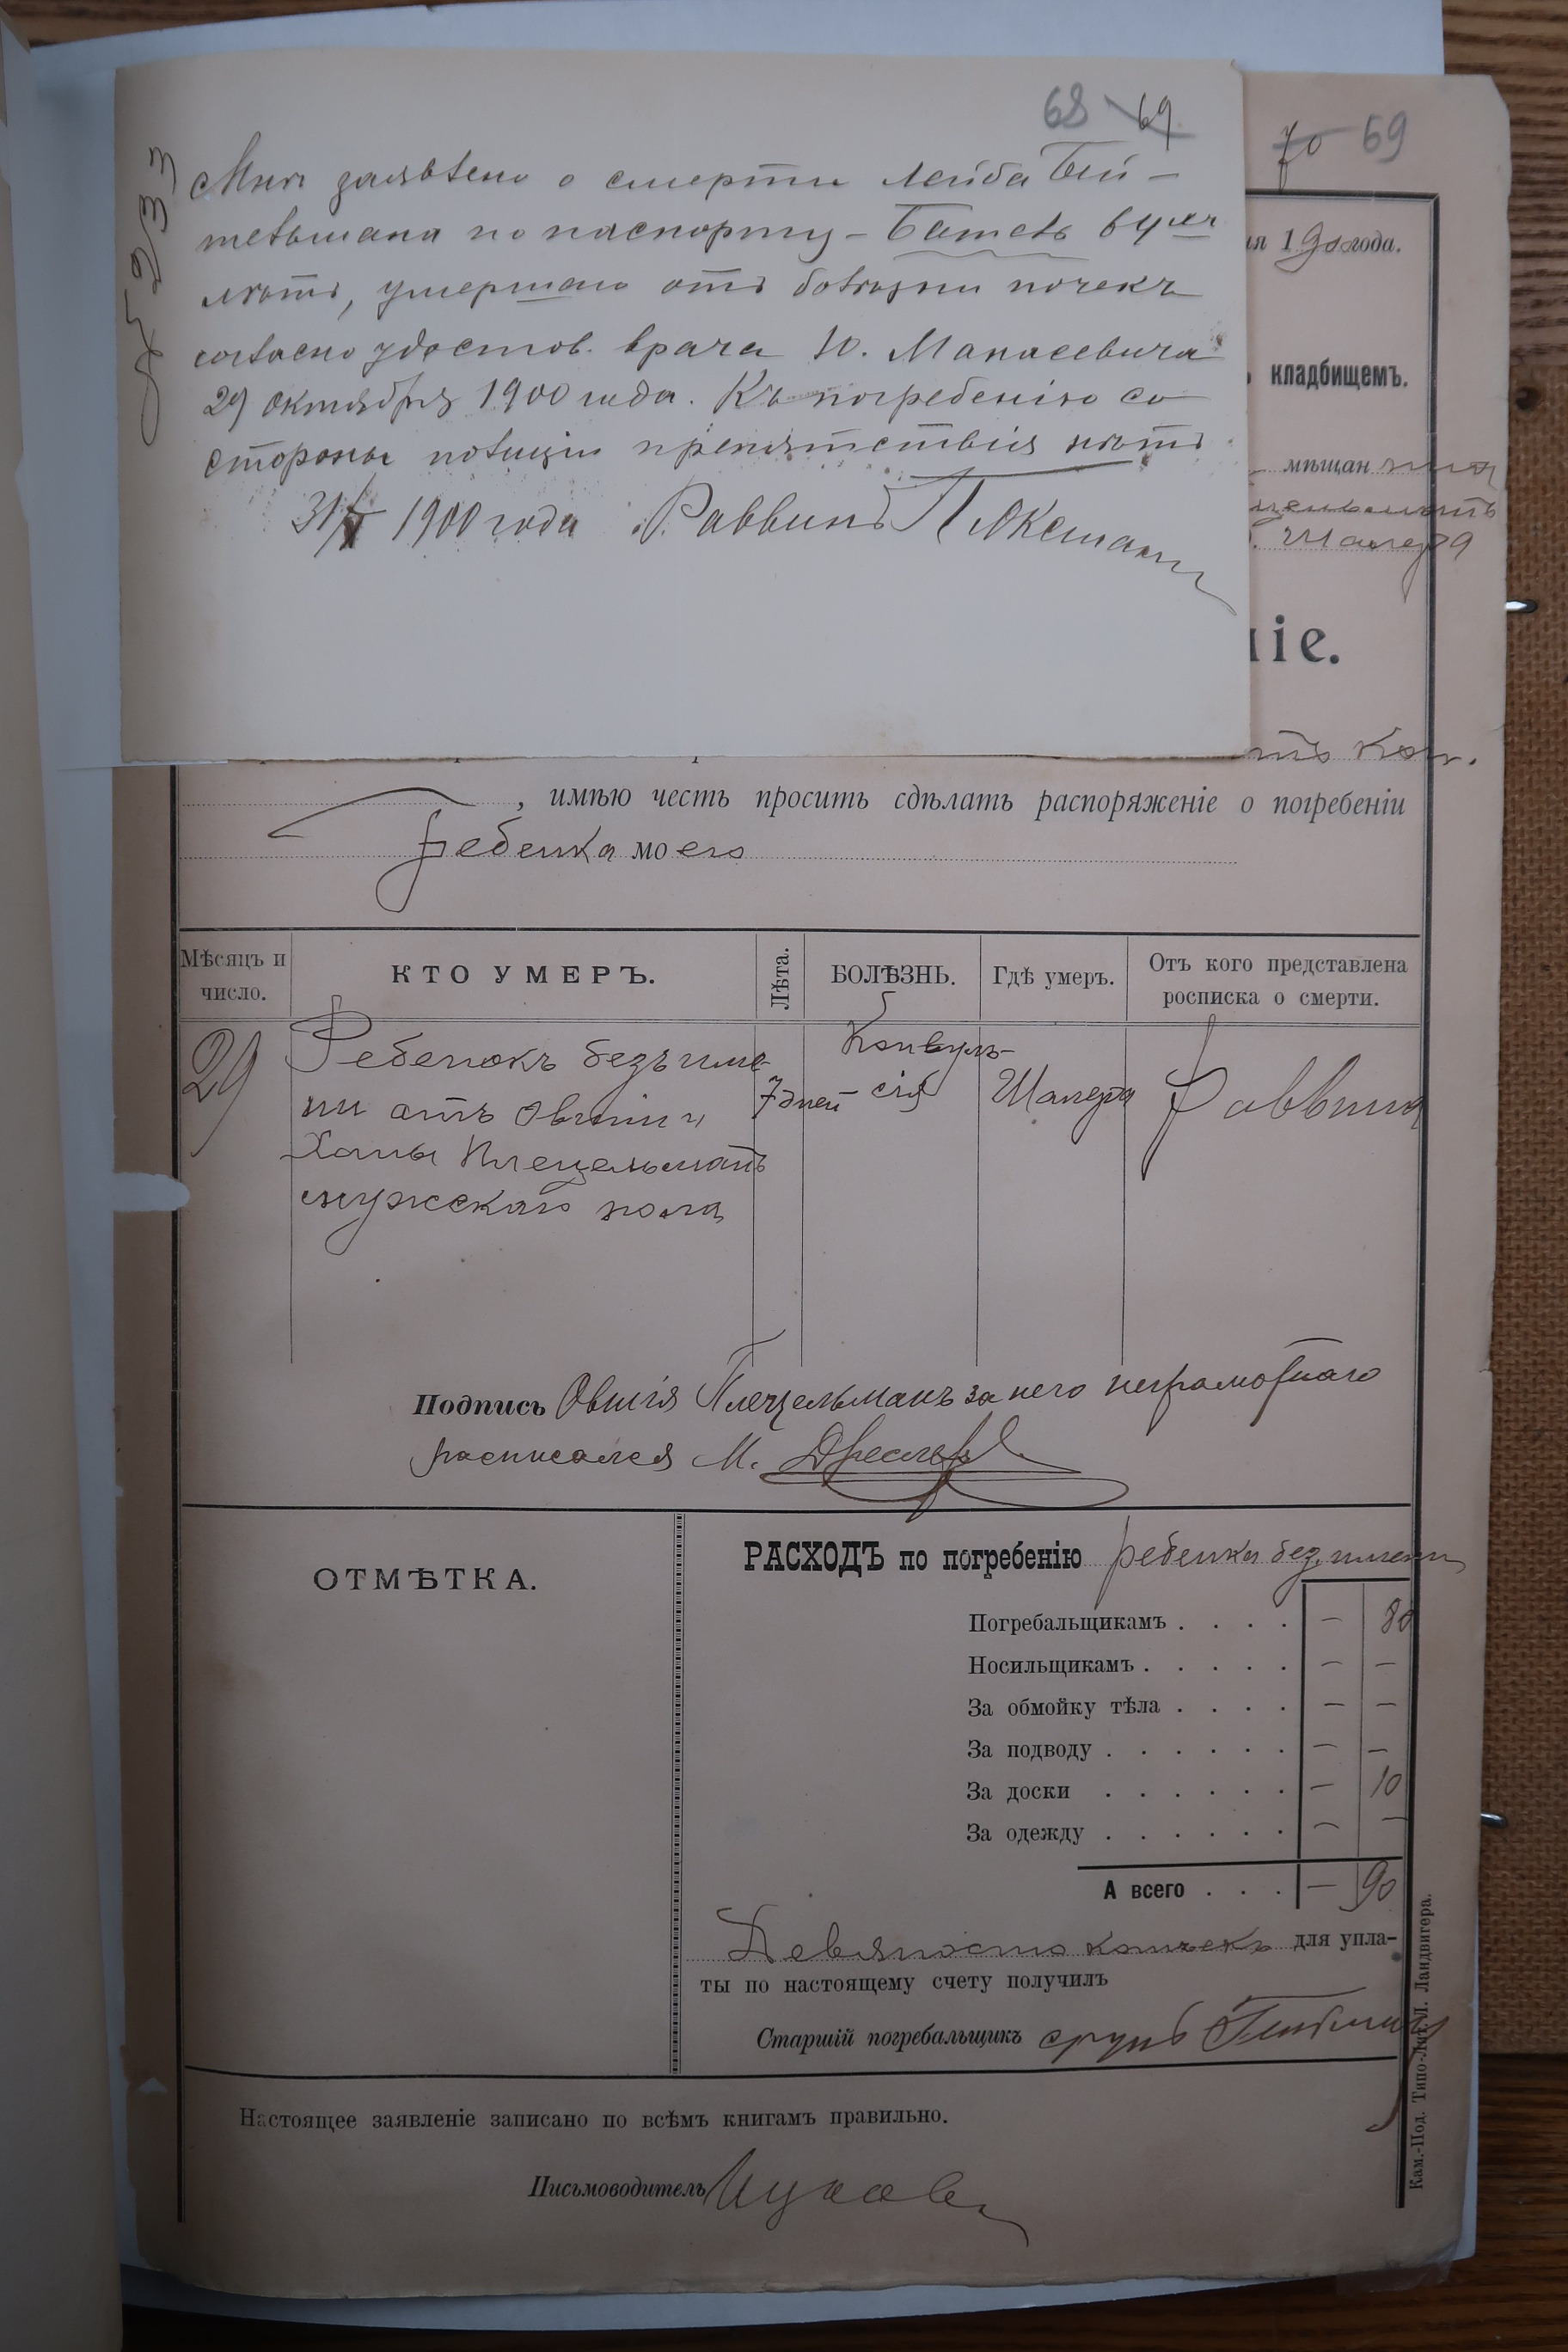 68 69
№ 5233
Мнѣ заявлено о смерти Лейба Бей-
тельмана по паспорту - 64хъ
лѣтъ, умершаго отъ болѣзни почекъ
согласно удостов. врача Ю. Манасевича
29 октября 1900 года. Къ погребенію со
стороны полиціи препятствія нѣтъ
31/X 1900 года Раввинъ
70 69
ія 1900 года.
кладбищемъ.
мѣщанина
ніе.
, имѣю честь просить сдѣлать распоряженіе о погребеніи
ребенка моего
Мѣсяцъ и число.
КТО УМЕРЪ.
Лѣта.
БОЛѢЗНЬ.
Гдѣ умеръ.
Отъ кого представлена росписка о смерти.
29
Ребенокъ безъ име-
ни отъ Овшіи и
Ханы Плецельманъ
мужскаго пола
7 дней
Конвуль-
сія
Раввина
Подпись Овшія Плецельманъ за него неграмотнаго
расписался М.
ОТМѢТКА.
РАСХОДЪ по погребенію ребенка без. имени
Погребальщикамъ . . . . — 80
Носильщикамъ . . . . . — —
За обмойку тѣла . . . . — —
За подводу . . . . . . — —
За доски . . . . . . — 10
За одежду . . . . . . — —
А всего . . . — 90
Девяносто копѣекъ для упла-
ты по настоящему счету получилъ
Старшій погребальщикъ
Настоящее заявленіе записано по всѣмъ книгамъ правильно.
Письмоводитель
Кам.-Под. Типо-Лит. Л. Ландвигера.